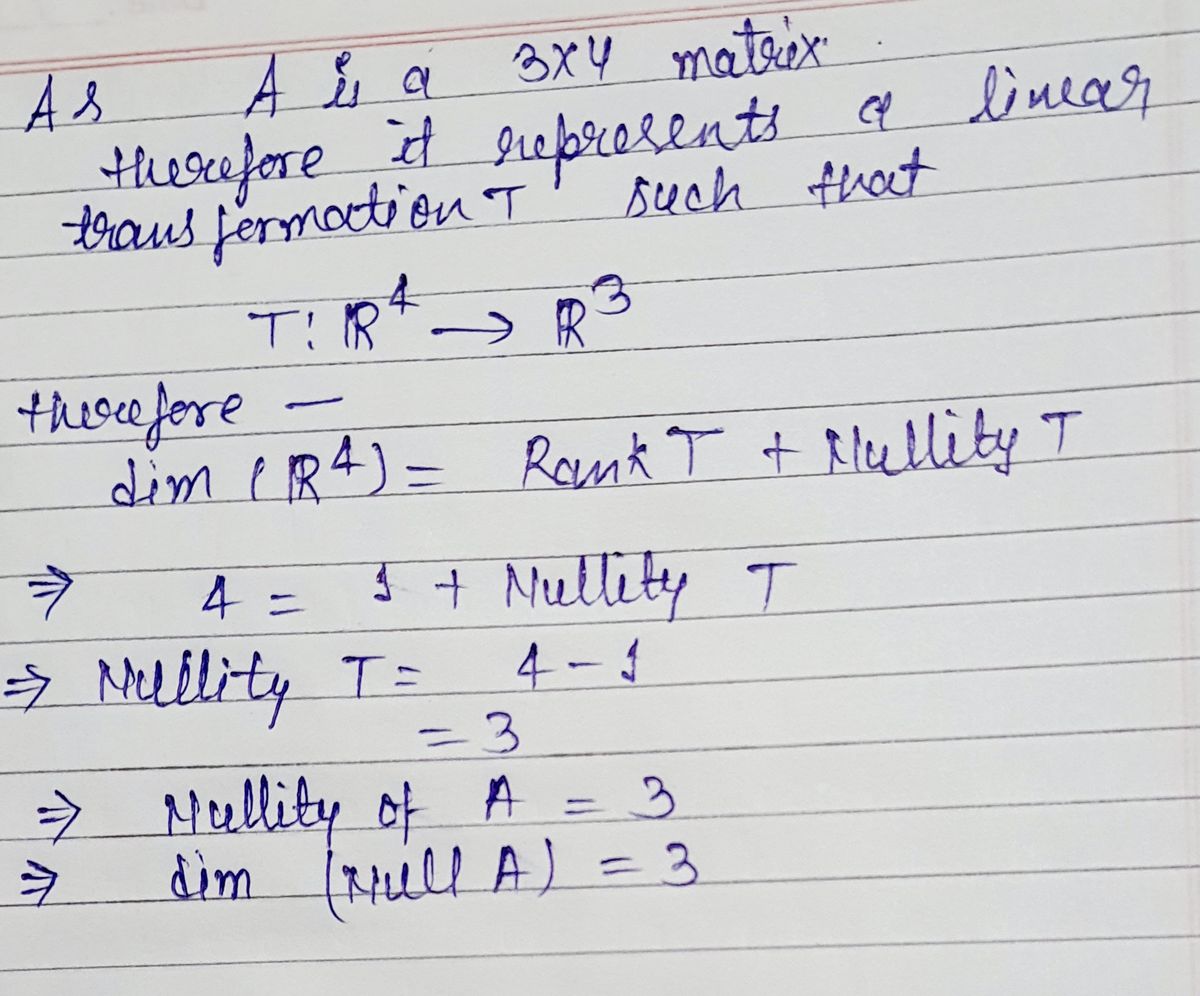 As A is a 3x4 matrix.
therefore it represents a linear
transformation T such that
T: ℝ⁴ → ℝ³
therefore —
dim (ℝ⁴) = Rank T + Nullity T
⇒ 4 = 1 + Nullity T
⇒ Nullity T = 4 - 1
= 3
⇒ Nullity of A = 3
⇒ dim (Null A) = 3